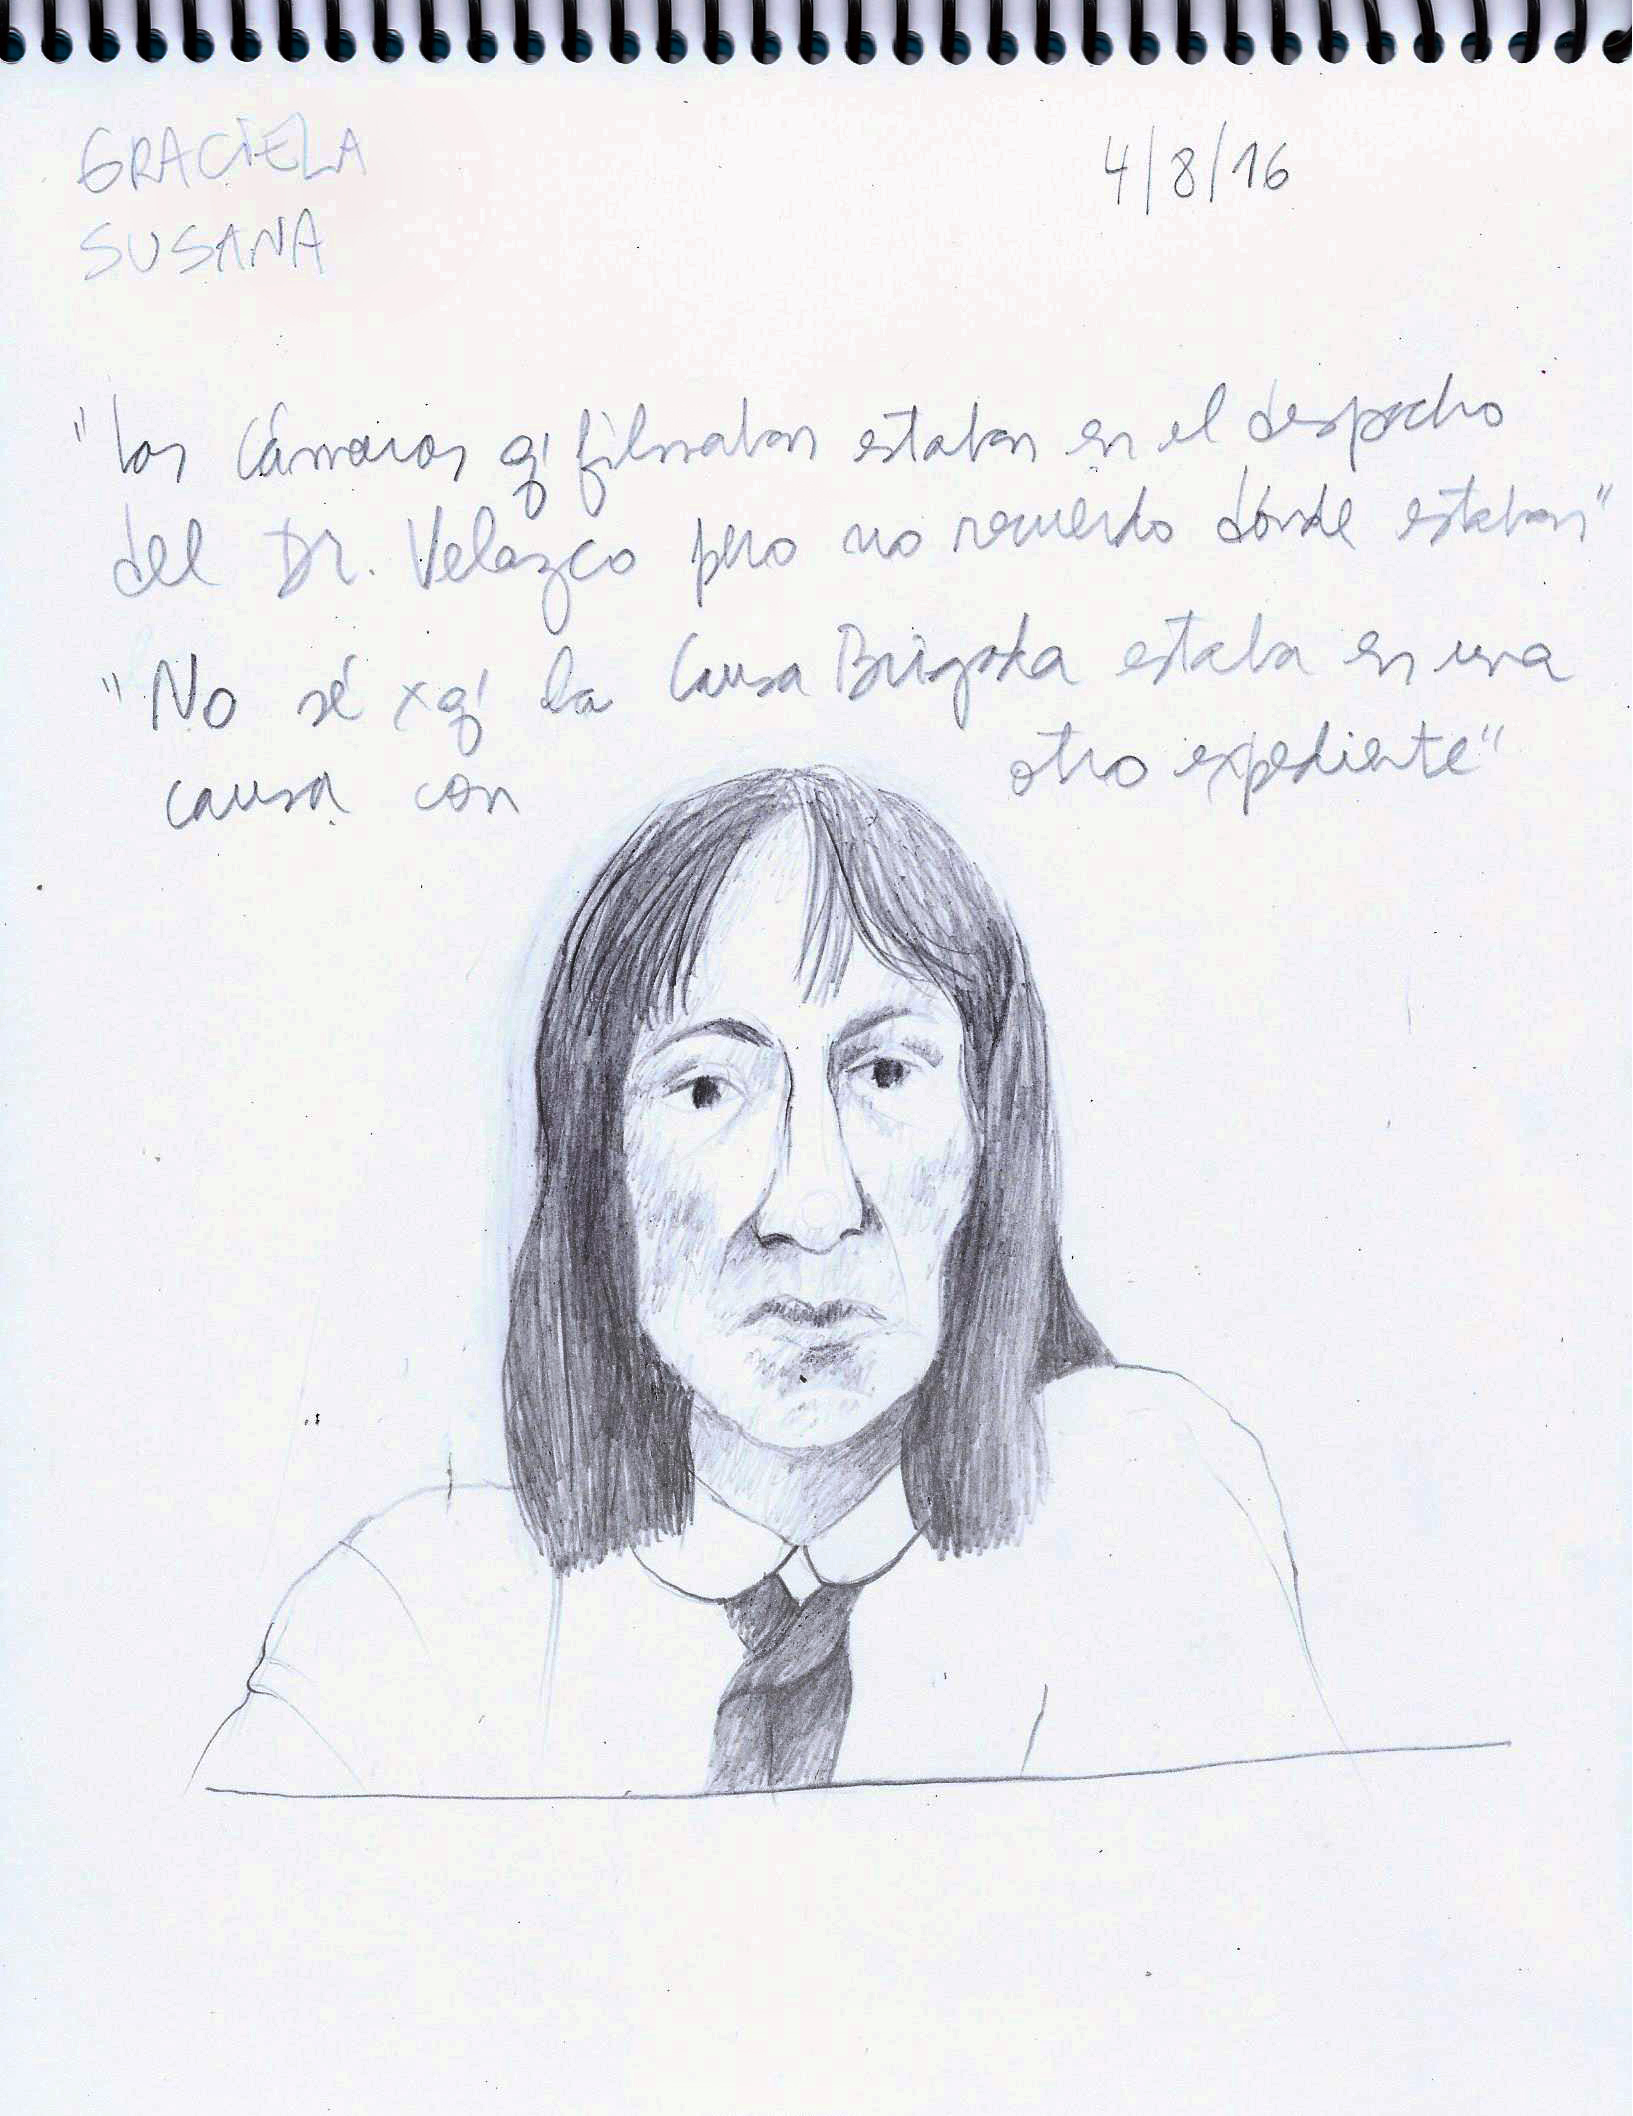 GRACIELA
SUSANA
4/8/16
"las cámaras q' filmaban estaban en el despacho
del Dr. Velazco pero no recuerdo dónde estaban"
"No sé xq' la Causa Brigada estaba en una
causa con otro expediente"